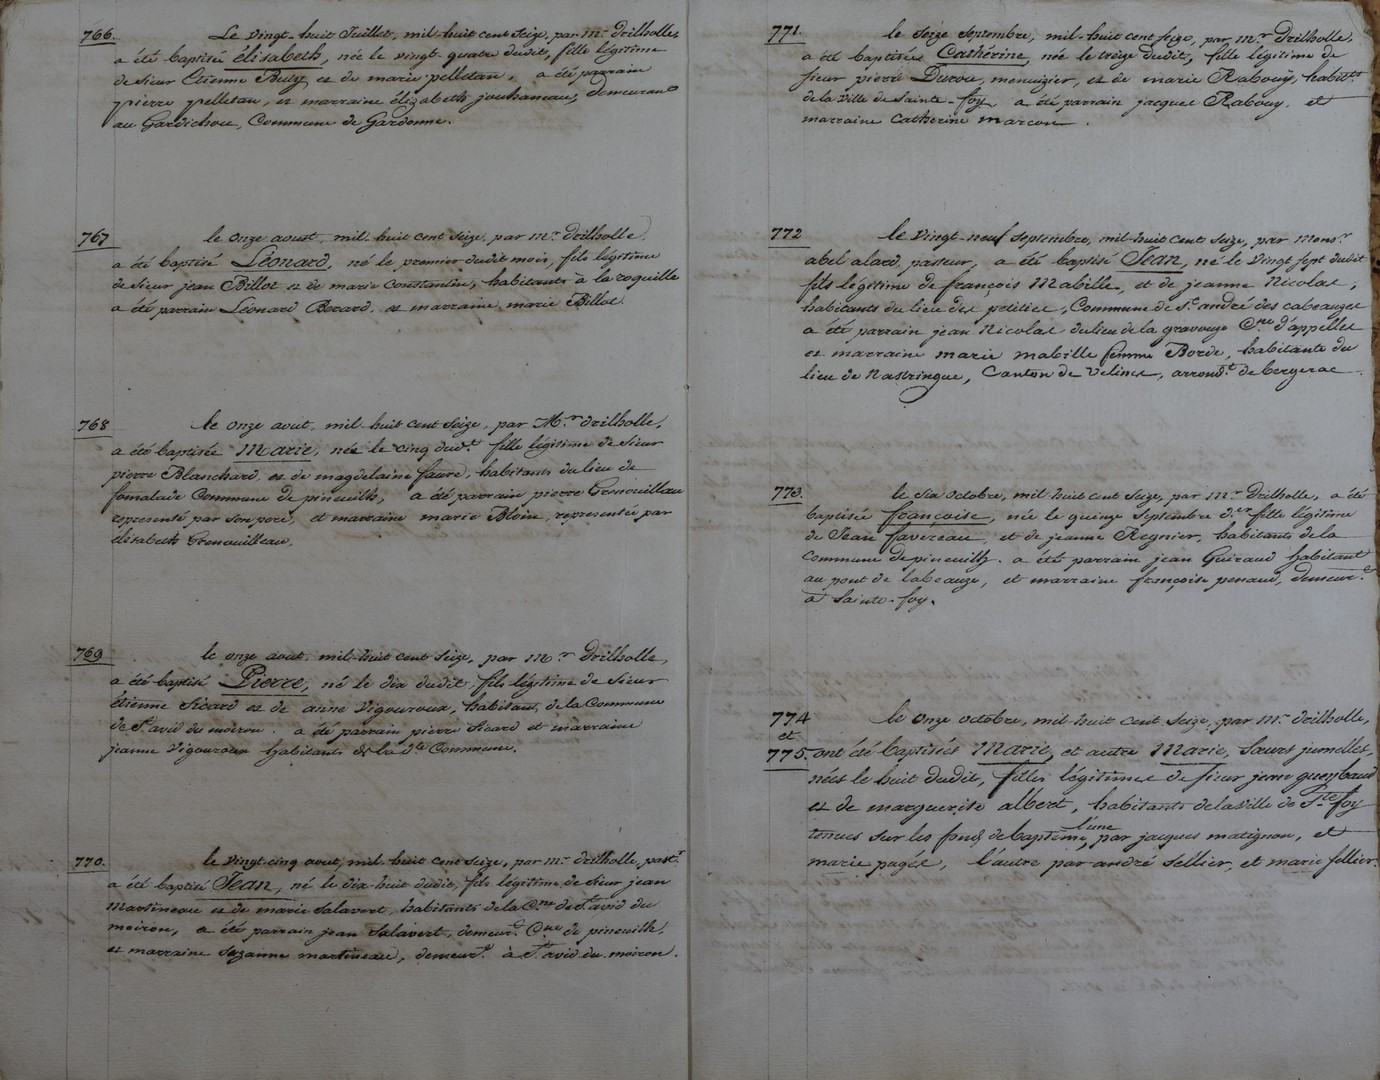 766. Le vingt-huit Juillet, mil-huit cent seize, par mr. drilholle,
a été baptisé élisabeth, née le vingt-quatre dudit, fille légitime
de sieur Etienne et de marie pelletan, a été parrain
pierre pelletan, et marraine élizabeth jouhaneau, demeurant
au Gardichou, Commune de Gardonne.
767 le onze aoust, mil-huit cent seize, par mr. drilholle,
a été baptisé Léonard, né le premier dudit mois, fils légitime
de sieur jean Billot et de marie constantin, habitants à la roquille
a été parrain Léonard Berard, et marraine marie Billot.
768 le onze aout, mil-huit cent seize, par Mr. drilholle,
a été baptisée Marie, née le cinq dudt. fille légitime de sieur
pierre Blanchard, et de magdelaine faure, habitants du lieu de
fomalade Commune de pineuilh, a été parrain pierre Grenouilleau
représenté par son pere, et marraine marie Bloin, représentée par
élisabeth Grenouilleau.
769 le onze aout, mil-huit cent seize, par mr. drilholle,
a été baptisé Pierre, né le dix dudit, fils légitime de sieur
étienne sicard et de anne vigouroux, habitant, de la Commune
de St. avid du moiron. a été parrain pierre sicard et marraine
jeanne vigouroux habitants de la dte Commune.
770. le vingt-cinq aout, mil-huit cent seize, par mr. drilholle, pastr.
a été baptisé Jean, né le dix-huit dudit, fils légitime de sieur jean
martineau et de marie salavert, habitants de la Cne de St. avid du
moiron, a été parrain jean salavert, demeurt. Cne de pineuilh,
et marraine suzanne martineau, demeurt. à St. avid du moiron.
771. le seize septembre, mil-huit cent seize, par mr. drilholle,
a été baptisée Cathérine, née le treize dudit, fille légitime de
sieur pierre Durou, menuizier, et de marie Rabouy, habitts
de la ville de sainte-foy, a été parrain jacques Rabouy, et
marraine catherine marcou.
772 le vingt-neuf septembre, mil-huit cent seize, par monsr.
abel alard, pasteur, a été baptisé Jean, né le vingt sept dudit
fils légitime de françois Mabille, et de jeanne Nicolas,
habitants du lieu des Commune de St. andré des cabeauzes
a été parrain jean Nicolas du lieu de la Cne d'appelles
et marraine marie mabille femme Borde, habitante du
lieu de Nastringue, Canton de velines, arrondt. de bergerac.
773. le six octobre, mil-huit cent seize, par mr. drilholle, a été
baptisée françoise, née le quinze septembre der. fille légitime
de Jean favereau, et de jeanne Regnier, habitants de la
commune de pineuilh. a été parrain jean Guiraud habitant
au pont de labeauze, et marraine françoise penaud, demeurt.
à sainte-foy.
774
et
775. le onze octobre, mil-huit cent seize, par mr. drilholle,
ont été baptisées Marie, et autre Marie, sœurs jumelles,
nées le huit dudit, filles légitimes de sieur jean
et de marguerite albert, habitants de la ville de Ste foy
tenues sur les fonds de baptême, l'une par jacques matignon, et
marie pagés, l'autre par andré sellier, et marie sellier.